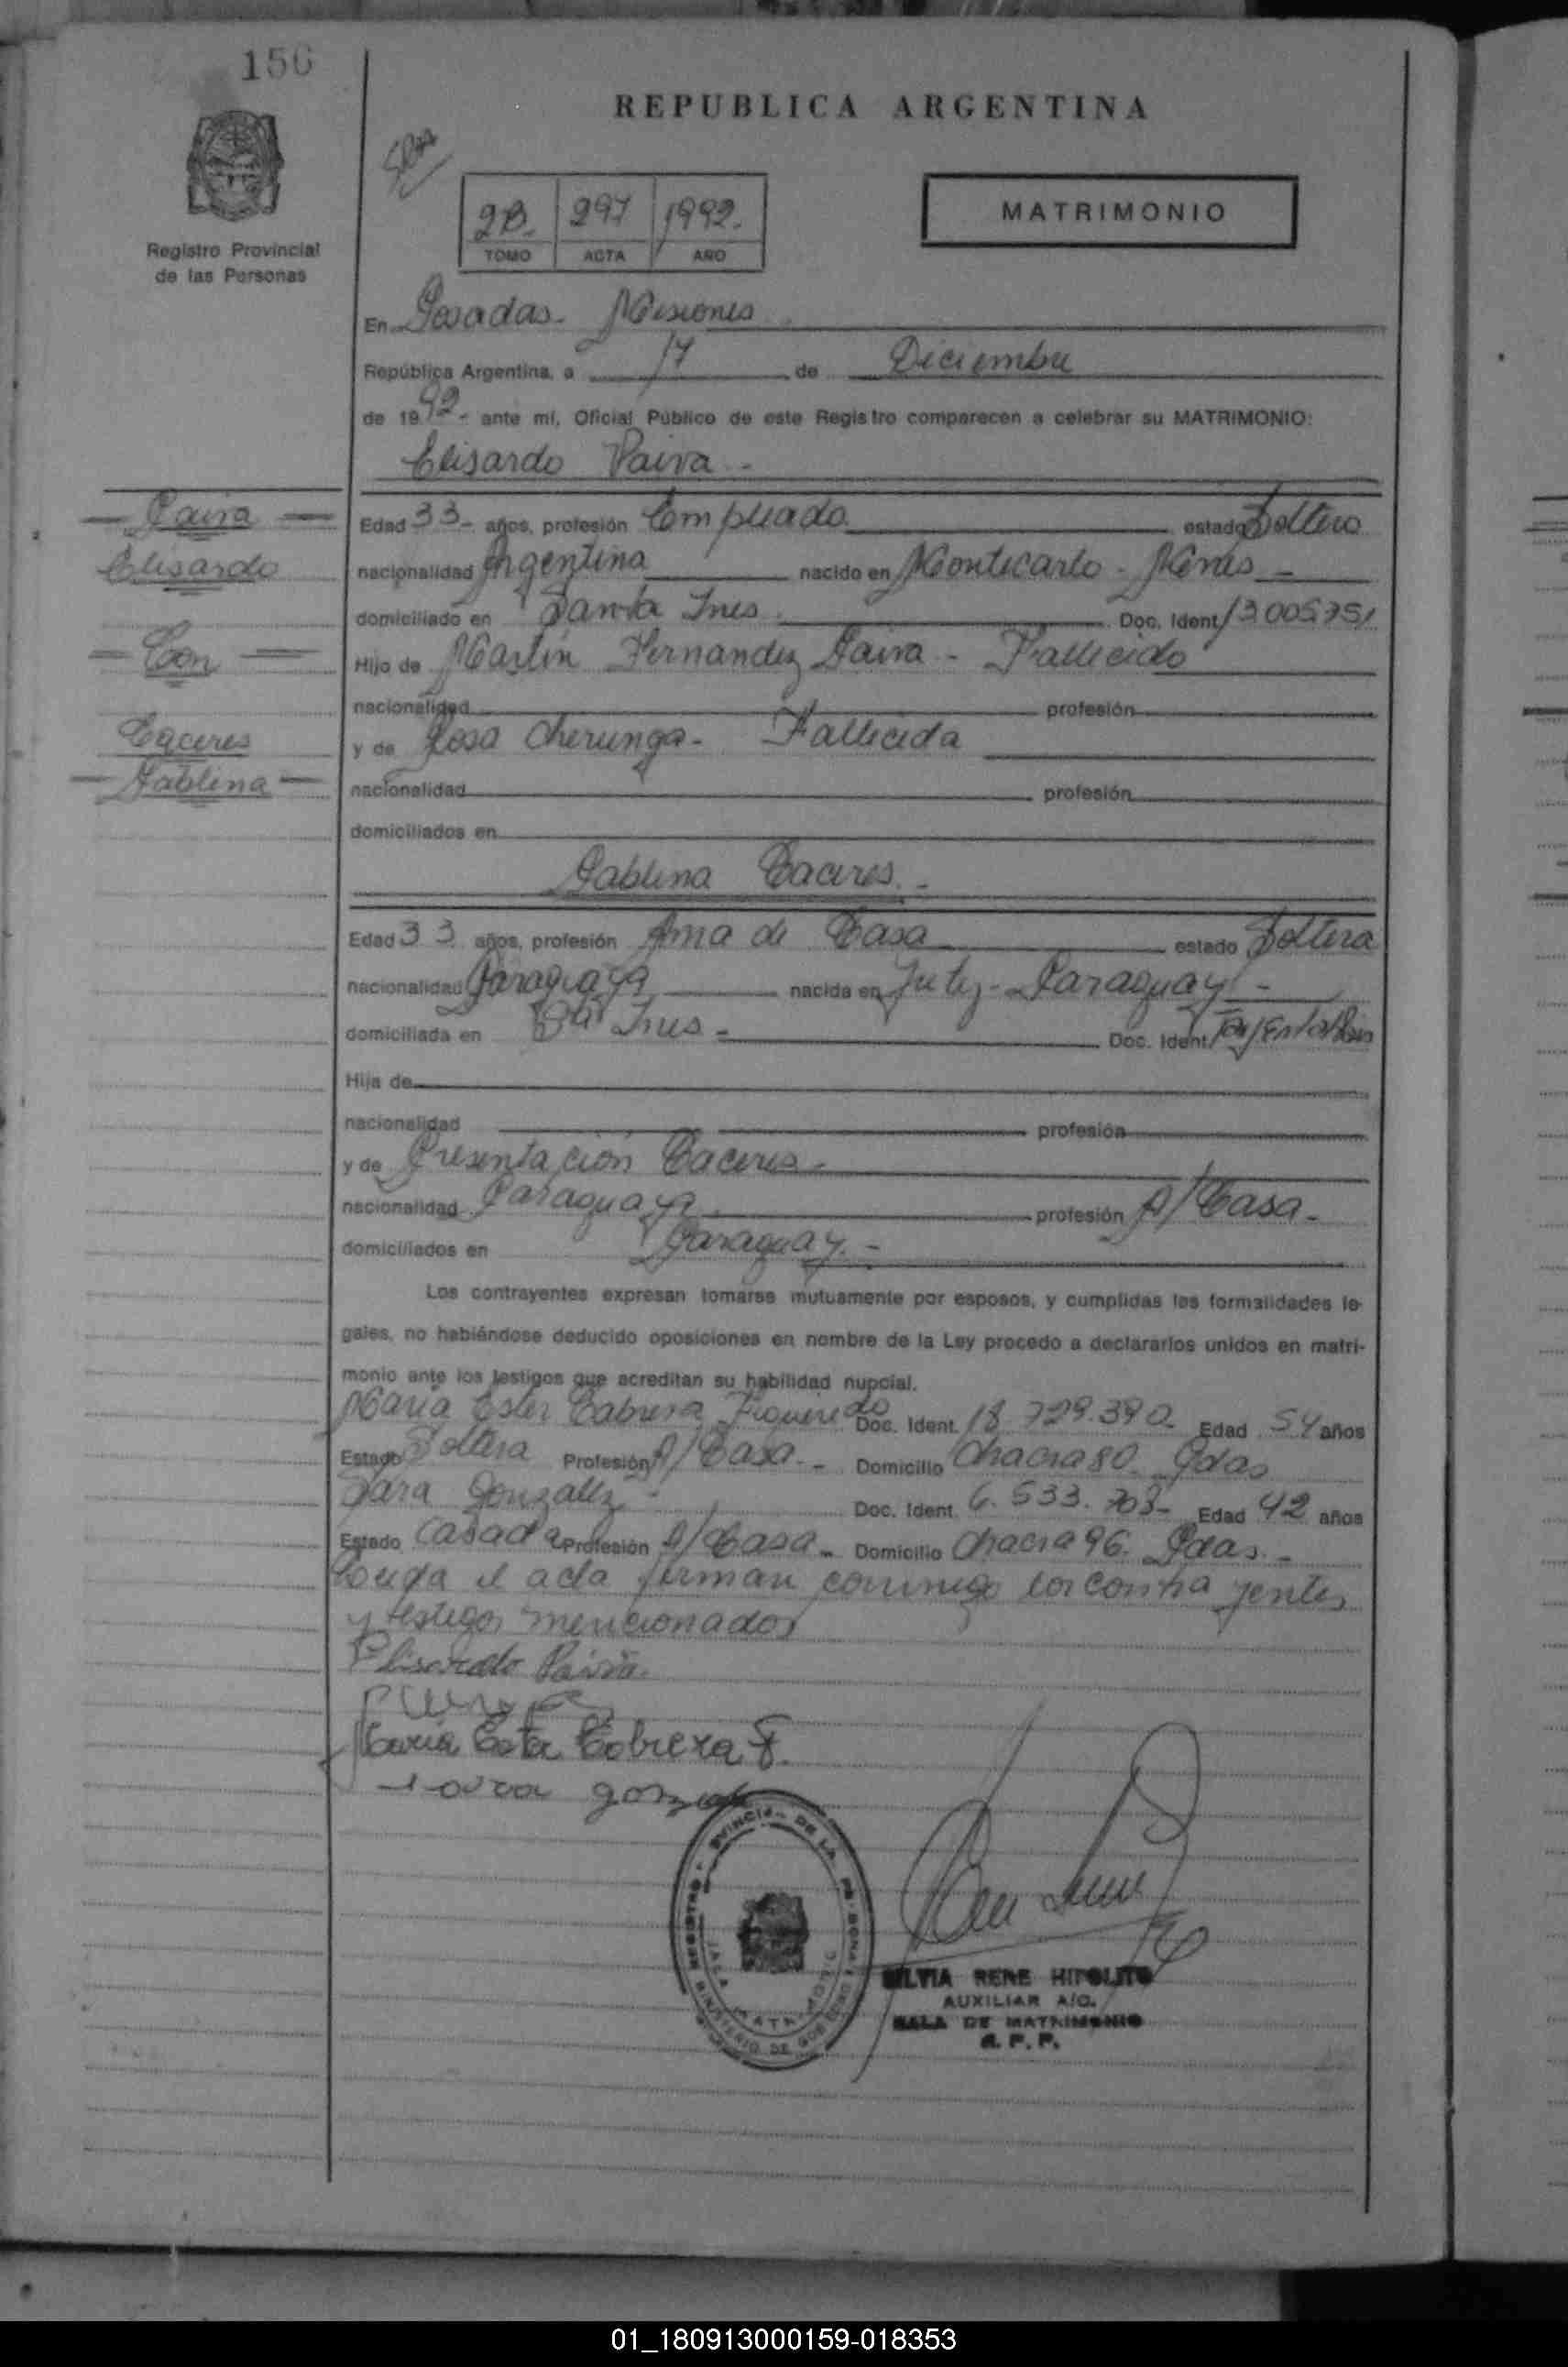 156
REPUBLICA ARGENTINA
2B. 297 1992.
TOMO ACTA AÑO
MATRIMONIO
Registro Provincial
de las Personas
En Posadas - Misiones
República Argentina, a 17 de Diciembre
de 1992 - ante mí, Oficial Público de este Registro comparecen a celebrar su MATRIMONIO:
Elisardo Paiva -
Paiva
Elisardo
Con
Caceres
Pablina
Edad 33 - años, profesión Empleado estado Soltero
nacionalidad Argentina nacido en Montecarlo - Mnes -
domiciliado en Santa Ines Doc. Ident. 13005751
Hijo de Martín Fernandez Paiva - Fallecido
nacionalidad profesión
y de Rosa Cherunga - Fallecida
nacionalidad profesión
domiciliados en
Pablina Caceres. -
Edad 33 años, profesión Ama de Casa estado Soltera
nacionalidad Paraguaya nacida en Yuty - Paraguay -
domiciliada en Sta Ines - Doc. Ident.
Hija de
nacionalidad profesión
y de Presentación Caceres -
nacionalidad Paraguaya profesión A/Casa -
domiciliados en Paraguay. -
Los contrayentes expresan tomarse mutuamente por esposos, y cumplidas las formalidades le-
gales, no habiéndose deducido oposiciones en nombre de la Ley procedo a declararlos unidos en matri-
monio ante los testigos que acreditan su habilidad nupcial.
Maria Ester Cabrera Figueredo Doc. Ident. 18.729.390 Edad 54 años
Estado Soltera Profesión A/Casa. - Domicilio Chacra 80 - Pdas
Sara Gonzalez - Doc. Ident. 6.533.703 - Edad 42 años
Estado Casada Profesión A/Casa - Domicilio Chacra 96. Pdas. -
Leida el acta firman conmigo los contrayentes
y testigos mencionados
Elisardo Paiva
Maria Ester Cabrera F.
Sara gonzalez
SILVIA RENE HIPOLITO
AUXILIAR A/C.
SALA DE MATRIMONIO
R. P. P.
01_180913000159-018353